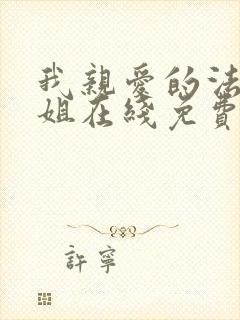 我親愛的法
姐在綫免費
許寧